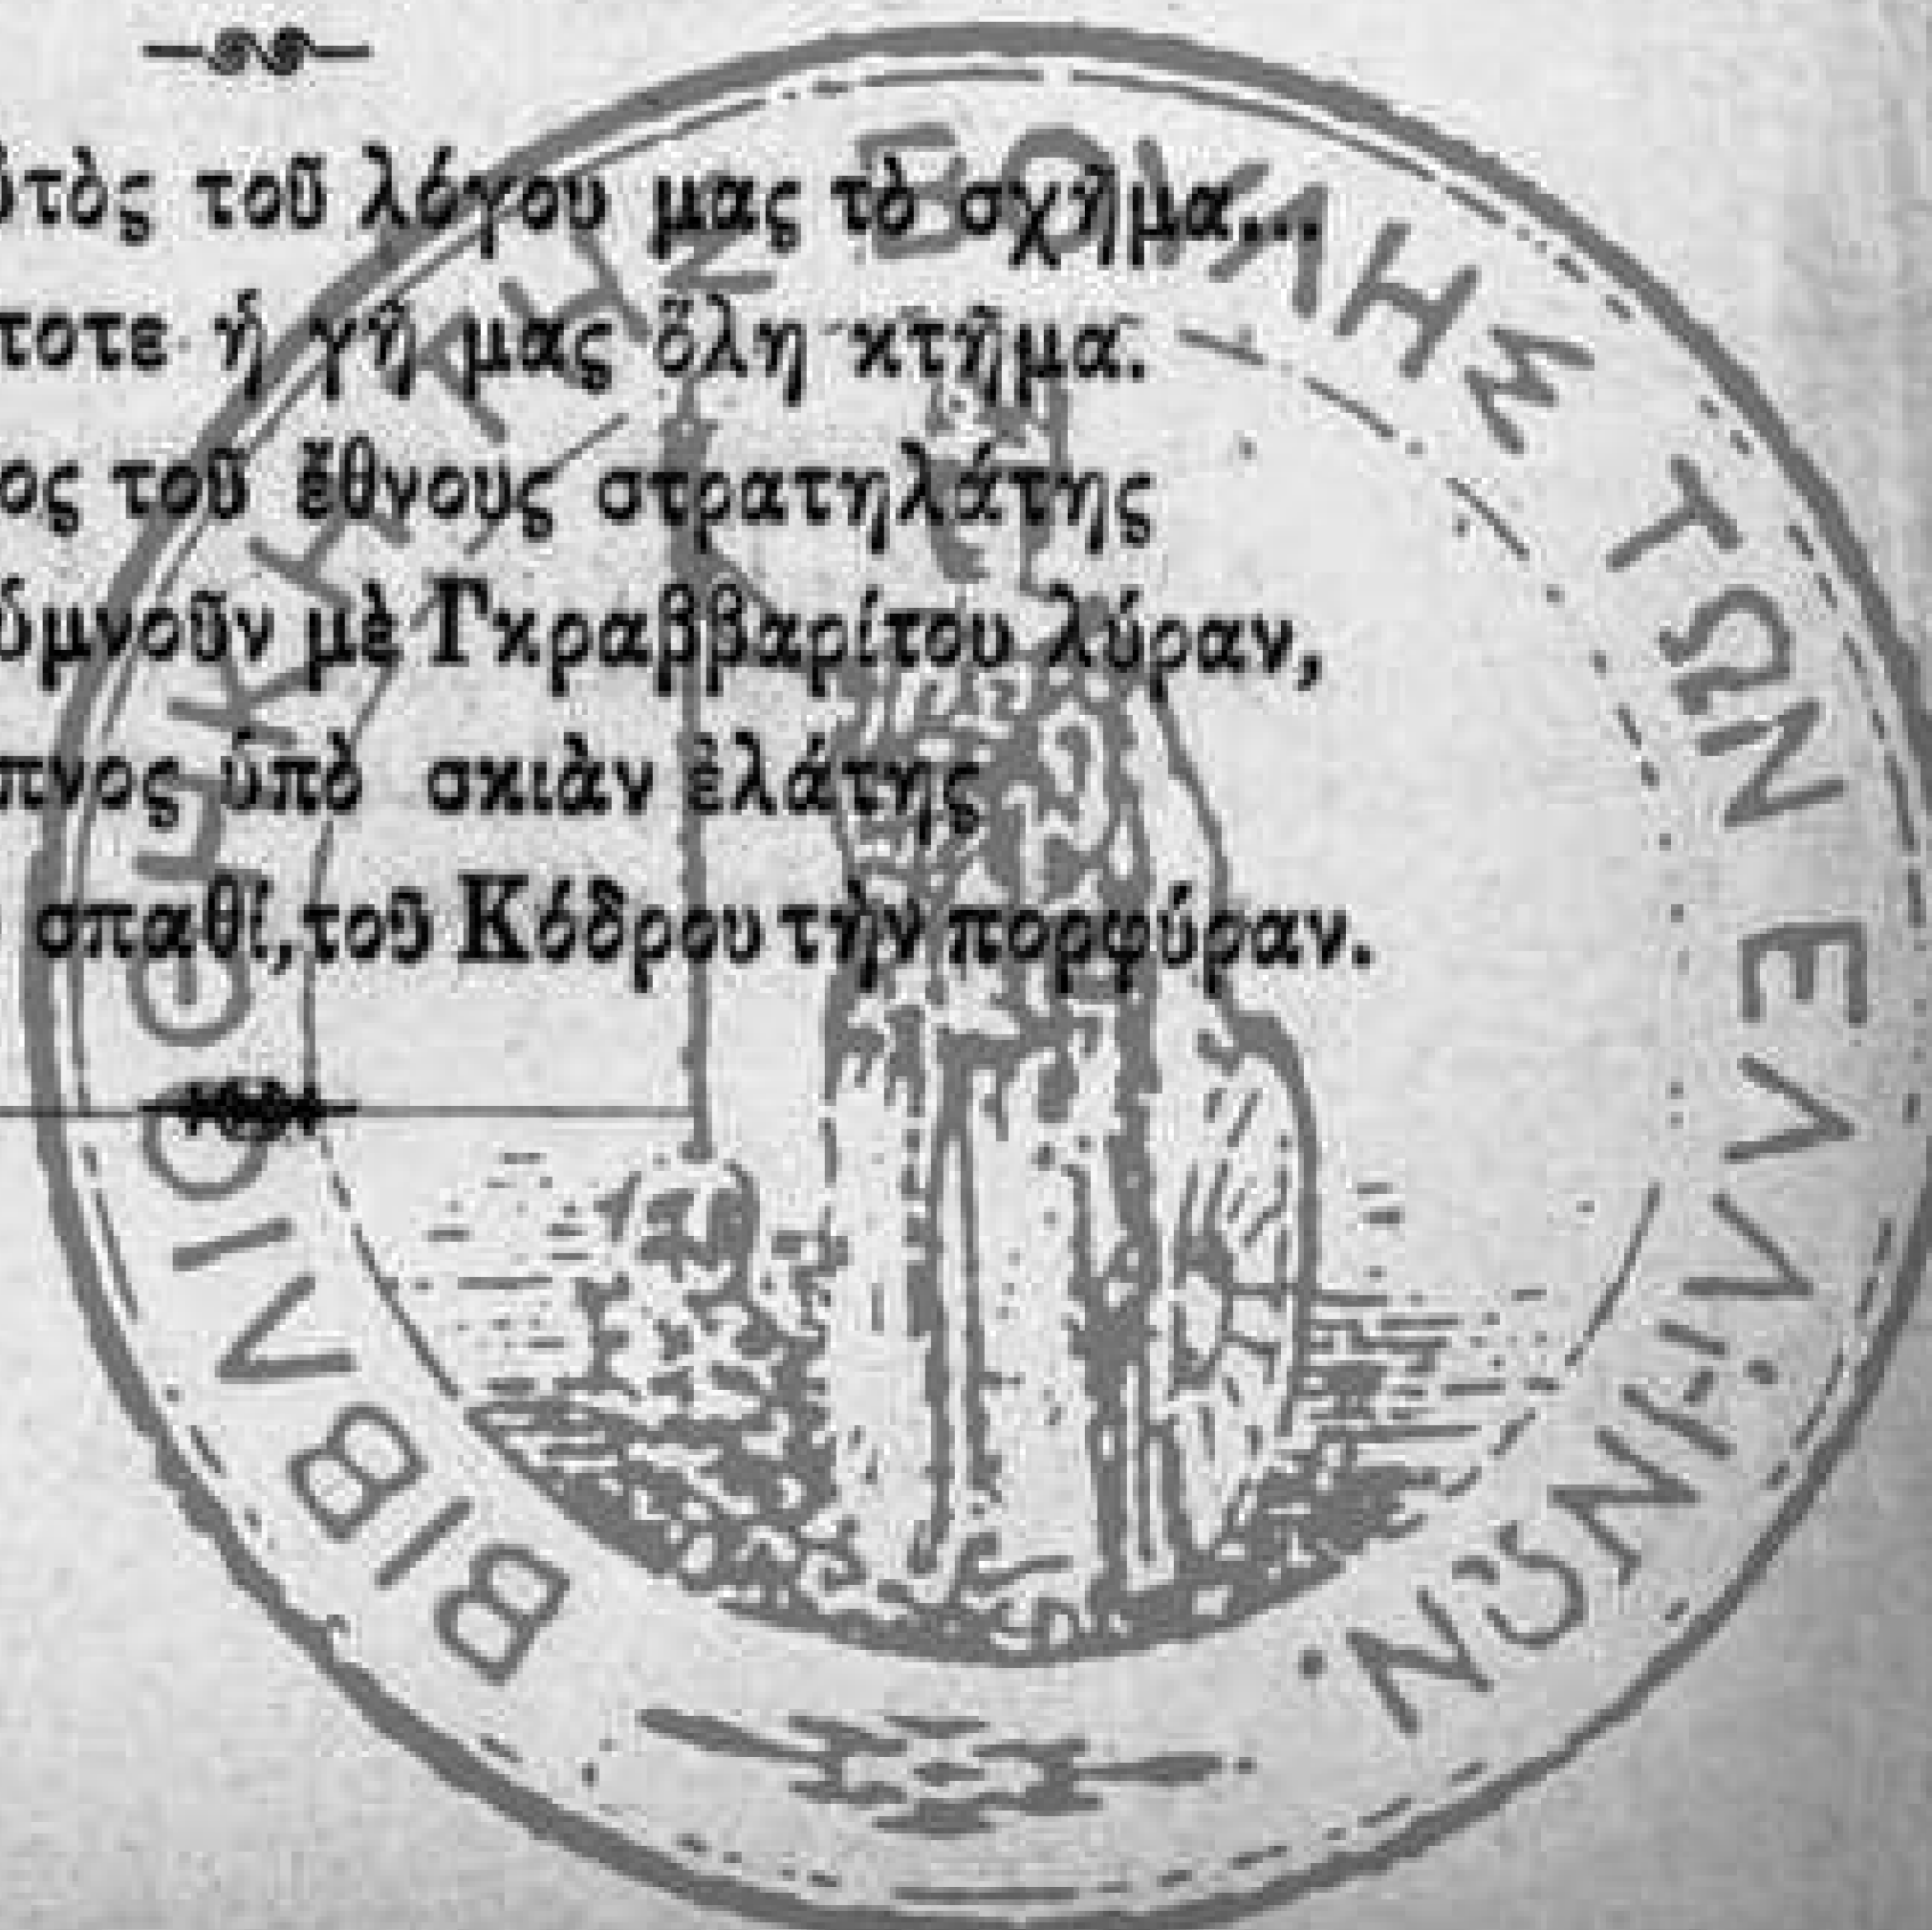 τοῦ λόγου μας τὸ σχῆμα...
ἡ γῆ μας ὅλη κτῆμα.
τοῦ ἔθνους στρατηλάτης
ὑμνοῦν μὲ Γκραββαρίτου λύραν,
ὑπὸ σκιὰν ἐλάτης
σπαθί, τοῦ Κόδρου τὴν πορφύραν.
ΒΙΒΛΙΟΘΗΚΗ ΤΗΣ ΒΟΥΛΗΣ ΤΩΝ ΕΛΛΗΝΩΝ.